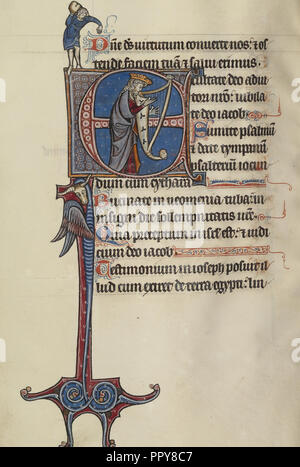 Dñe deus uirtutum conuerte nos: & os
tende faciem tuā & salui erimus.
Exultate deo adiu
tori nr̄o: iubila
te deo iacob.
Sumite psalmū
& date tympanū
psalterium iocun
dum cum cythara.
Buccinate in neomenia tuba: in
insigni die sollempnitatis uēe.
Quia preceptum in isrl' est: & iudi
cium deo iacob.
Testimonium in ioseph posuit il
lud cum exiret de terra egypti: lin
alamy
Image ID: PPY8C7
www.alamy.com